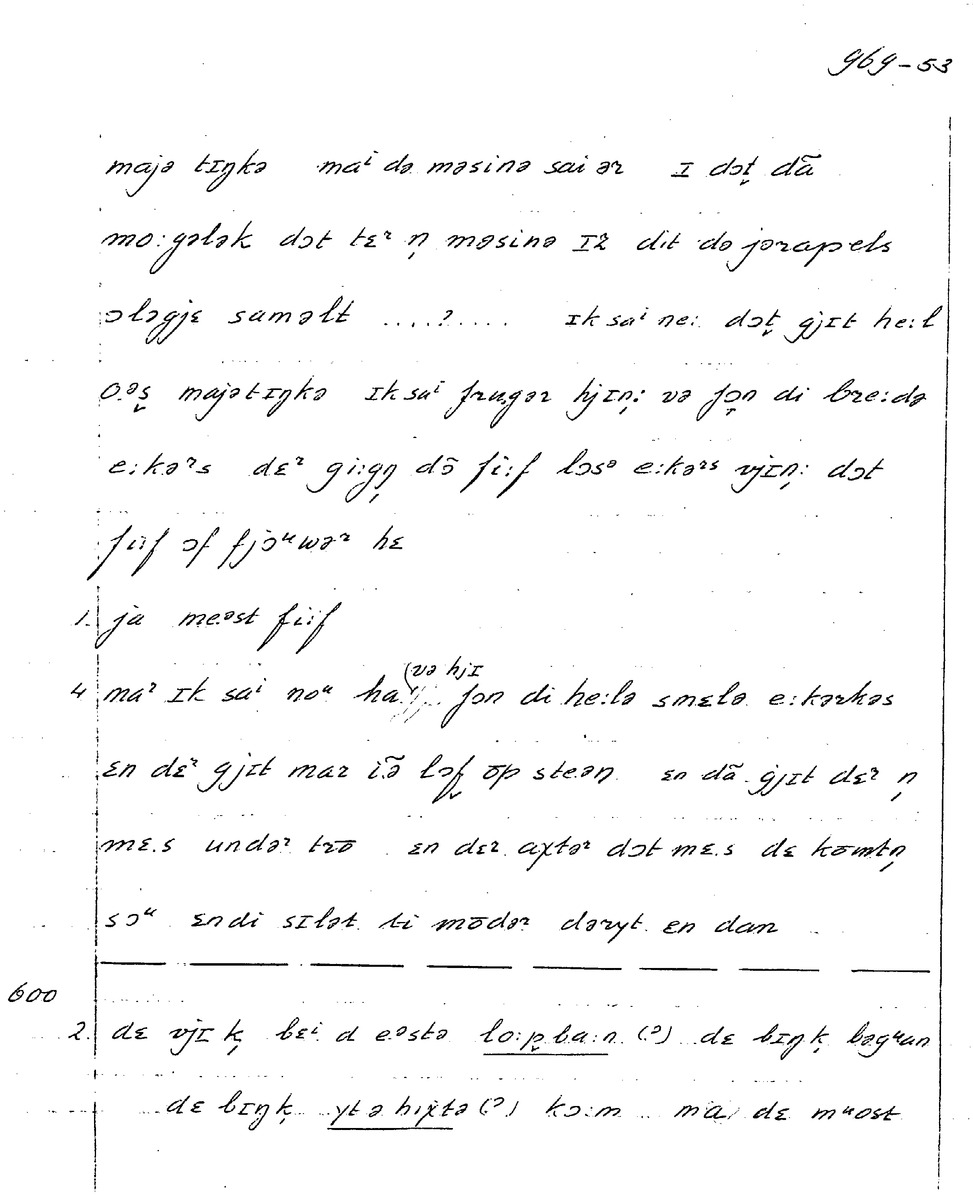 g6g-53
majə tɪŋkə maⁱ də məsinə sai ər ɪ dɔt̬ dã
mo:gələk dɔt tɛʳ n̩ məsinə ɪz dit də jərapels
ɔləgjɛ saməlt ....?.... ɪk saⁱ ne: dɔt̬ gjɪt he:l
o.ᵊs̬ majətɪŋkə ɪk saⁱ frugər hjɪn̩: və fɔn di bre:də
e:kəʳs dɛʳ gi:gn̩ dõ fi:f ləsᵊ e:kəʳˢ vjɪn̩: dɔt
fi:f ɔf fjɔᵘwəʳ hɛ
1. ja me.əst fi:f
4 maʳ ɪk saⁱ noᵘ ha. və hjɪ fɔn di he:lə smɛlə e:kərkəs
ɛn dɛʳ gjɪt mar i:ə̃ ləf̬ õp steən ɛn dã gjɪt dɛʳ n̩
mɛ.s undəʳ trõ ɛn dɛr aχtəʳ dɔt mɛ.s dɛ kõmtn̩
sɔᵘ ɛn di sɪlət ti mõdəʳ dəryt ɛn dan
600
2. dɛ vjɪ k̩ bɛⁱ d eəstə lo:p̬ba:n (?) dɛ bɪŋk̩ bəgᵘan
dɛ bɪŋk̩ yt ə hɪχtə (?) kɔ:m ma dɛ mᵘost